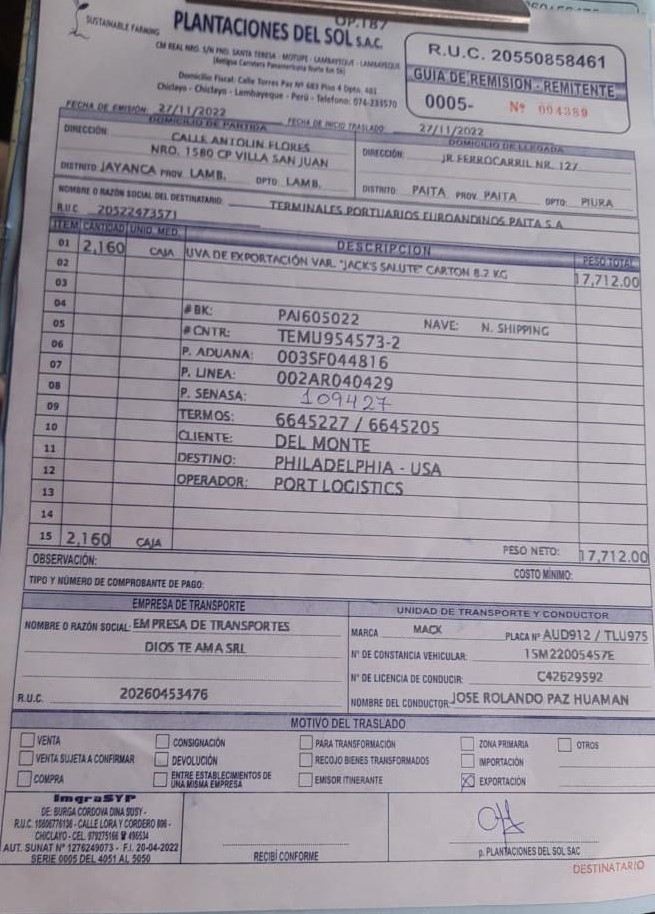 OP.187
SUSTAINABLE FARMING
PLANTACIONES DEL SOL S.A.C.
CM REAL NRO. S/N FND. SANTA TERESA - MOTUPE - LAMBAYEQUE - LAMBAYEQUE
(Antigua Carretera Panamericana Norte Km 56)
Domicilio Fiscal: Calle Torres Paz Nº 683 Piso 4 Dpto. 401
Chiclayo - Chiclayo - Lambayeque - Perú - Telefono: 074-233570
R.U.C. 20550858461
GUIA DE REMISION - REMITENTE
0005- Nº 004389
FECHA DE EMISIÓN: 27/11/2022 FECHA DE INICIO TRASLADO: 27/11/2022
DOMICILIO DE PARTIDA
DIRECCIÓN: CALLE ANTOLIN FLORES
NRO. 1580 CP VILLA SAN JUAN
DISTRITO: JAYANCA PROV. LAMB. DPTO LAMB.
DOMICILIO DE LLEGADA
DIRECCIÓN: JR FERROCARRIL NR. 127
DISTRITO: PAITA PROV. PAITA DPTO: PIURA
NOMBRE O RAZÓN SOCIAL DEL DESTINATARIO: TERMINALES PORTUARIOS EUROANDINOS PAITA S.A
R.U.C. 20522473571
ITEM CANTIDAD UNID. MED. DESCRIPCION PESO TOTAL
01 2,160 CAJA UVA DE EXPORTACIÓN VAR. "JACK'S SALUTE" CARTON 8.2 KG 17,712.00
02
03
04 #BK: PAI605022 NAVE: N. SHIPPING
05 #CNTR: TEMU954573-2
06 P. ADUANA: 003SF044816
07 P. LINEA: 002AR040429
08 P. SENASA: 109427
09 TERMOS: 6645227 / 6645205
10 CLIENTE: DEL MONTE
11 DESTINO: PHILADELPHIA - USA
12 OPERADOR: PORT LOGISTICS
13
14
15 2,160 CAJA PESO NETO: 17,712.00
OBSERVACIÓN: COSTO MÍNIMO:
TIPO Y NÚMERO DE COMPROBANTE DE PAGO:
EMPRESA DE TRANSPORTE
NOMBRE O RAZÓN SOCIAL: EMPRESA DE TRANSPORTES
DIOS TE AMA SRL
R.U.C. 20260453476
UNIDAD DE TRANSPORTE Y CONDUCTOR
MARCA MACK PLACA Nº AUD912 / TLU975
Nº DE CONSTANCIA VEHICULAR: 15M22005457E
Nº DE LICENCIA DE CONDUCIR: C42629592
NOMBRE DEL CONDUCTOR JOSE ROLANDO PAZ HUAMAN
MOTIVO DEL TRASLADO
VENTA CONSIGNACIÓN PARA TRANSFORMACIÓN ZONA PRIMARIA OTROS
VENTA SUJETA A CONFIRMAR DEVOLUCIÓN RECOJO BIENES TRANSFORMADOS IMPORTACIÓN
COMPRA ENTRE ESTABLECIMIENTOS DE UNA MISMA EMPRESA EMISOR ITINERANTE EXPORTACIÓN
ImgraSYP
DE: BURGA CORDOVA DINA SUSY -
R.U.C. 10806776136 - CALLE LORA Y CORDERO 806 -
CHICLAYO - CEL. 979275166 ☎ 496534
AUT. SUNAT Nº 1276249073 - F.I. 20-04-2022
SERIE 0005 DEL 4051 AL 5050
RECIBÍ CONFORME
p. PLANTACIONES DEL SOL SAC
DESTINATARIO